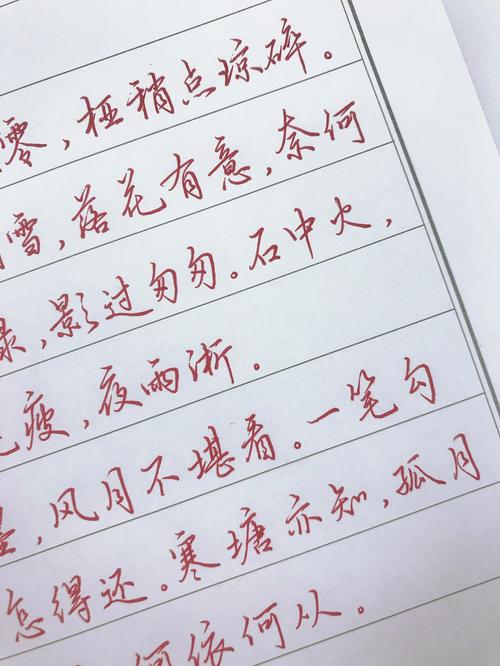 零，極稍点琼碎。
雪，落花有意，奈何
影过匆匆。石中火，
瘦，夜雨淅。
，风月不堪看。一笔勾
怎得还。寒塘亦知，孤月
何依何从。